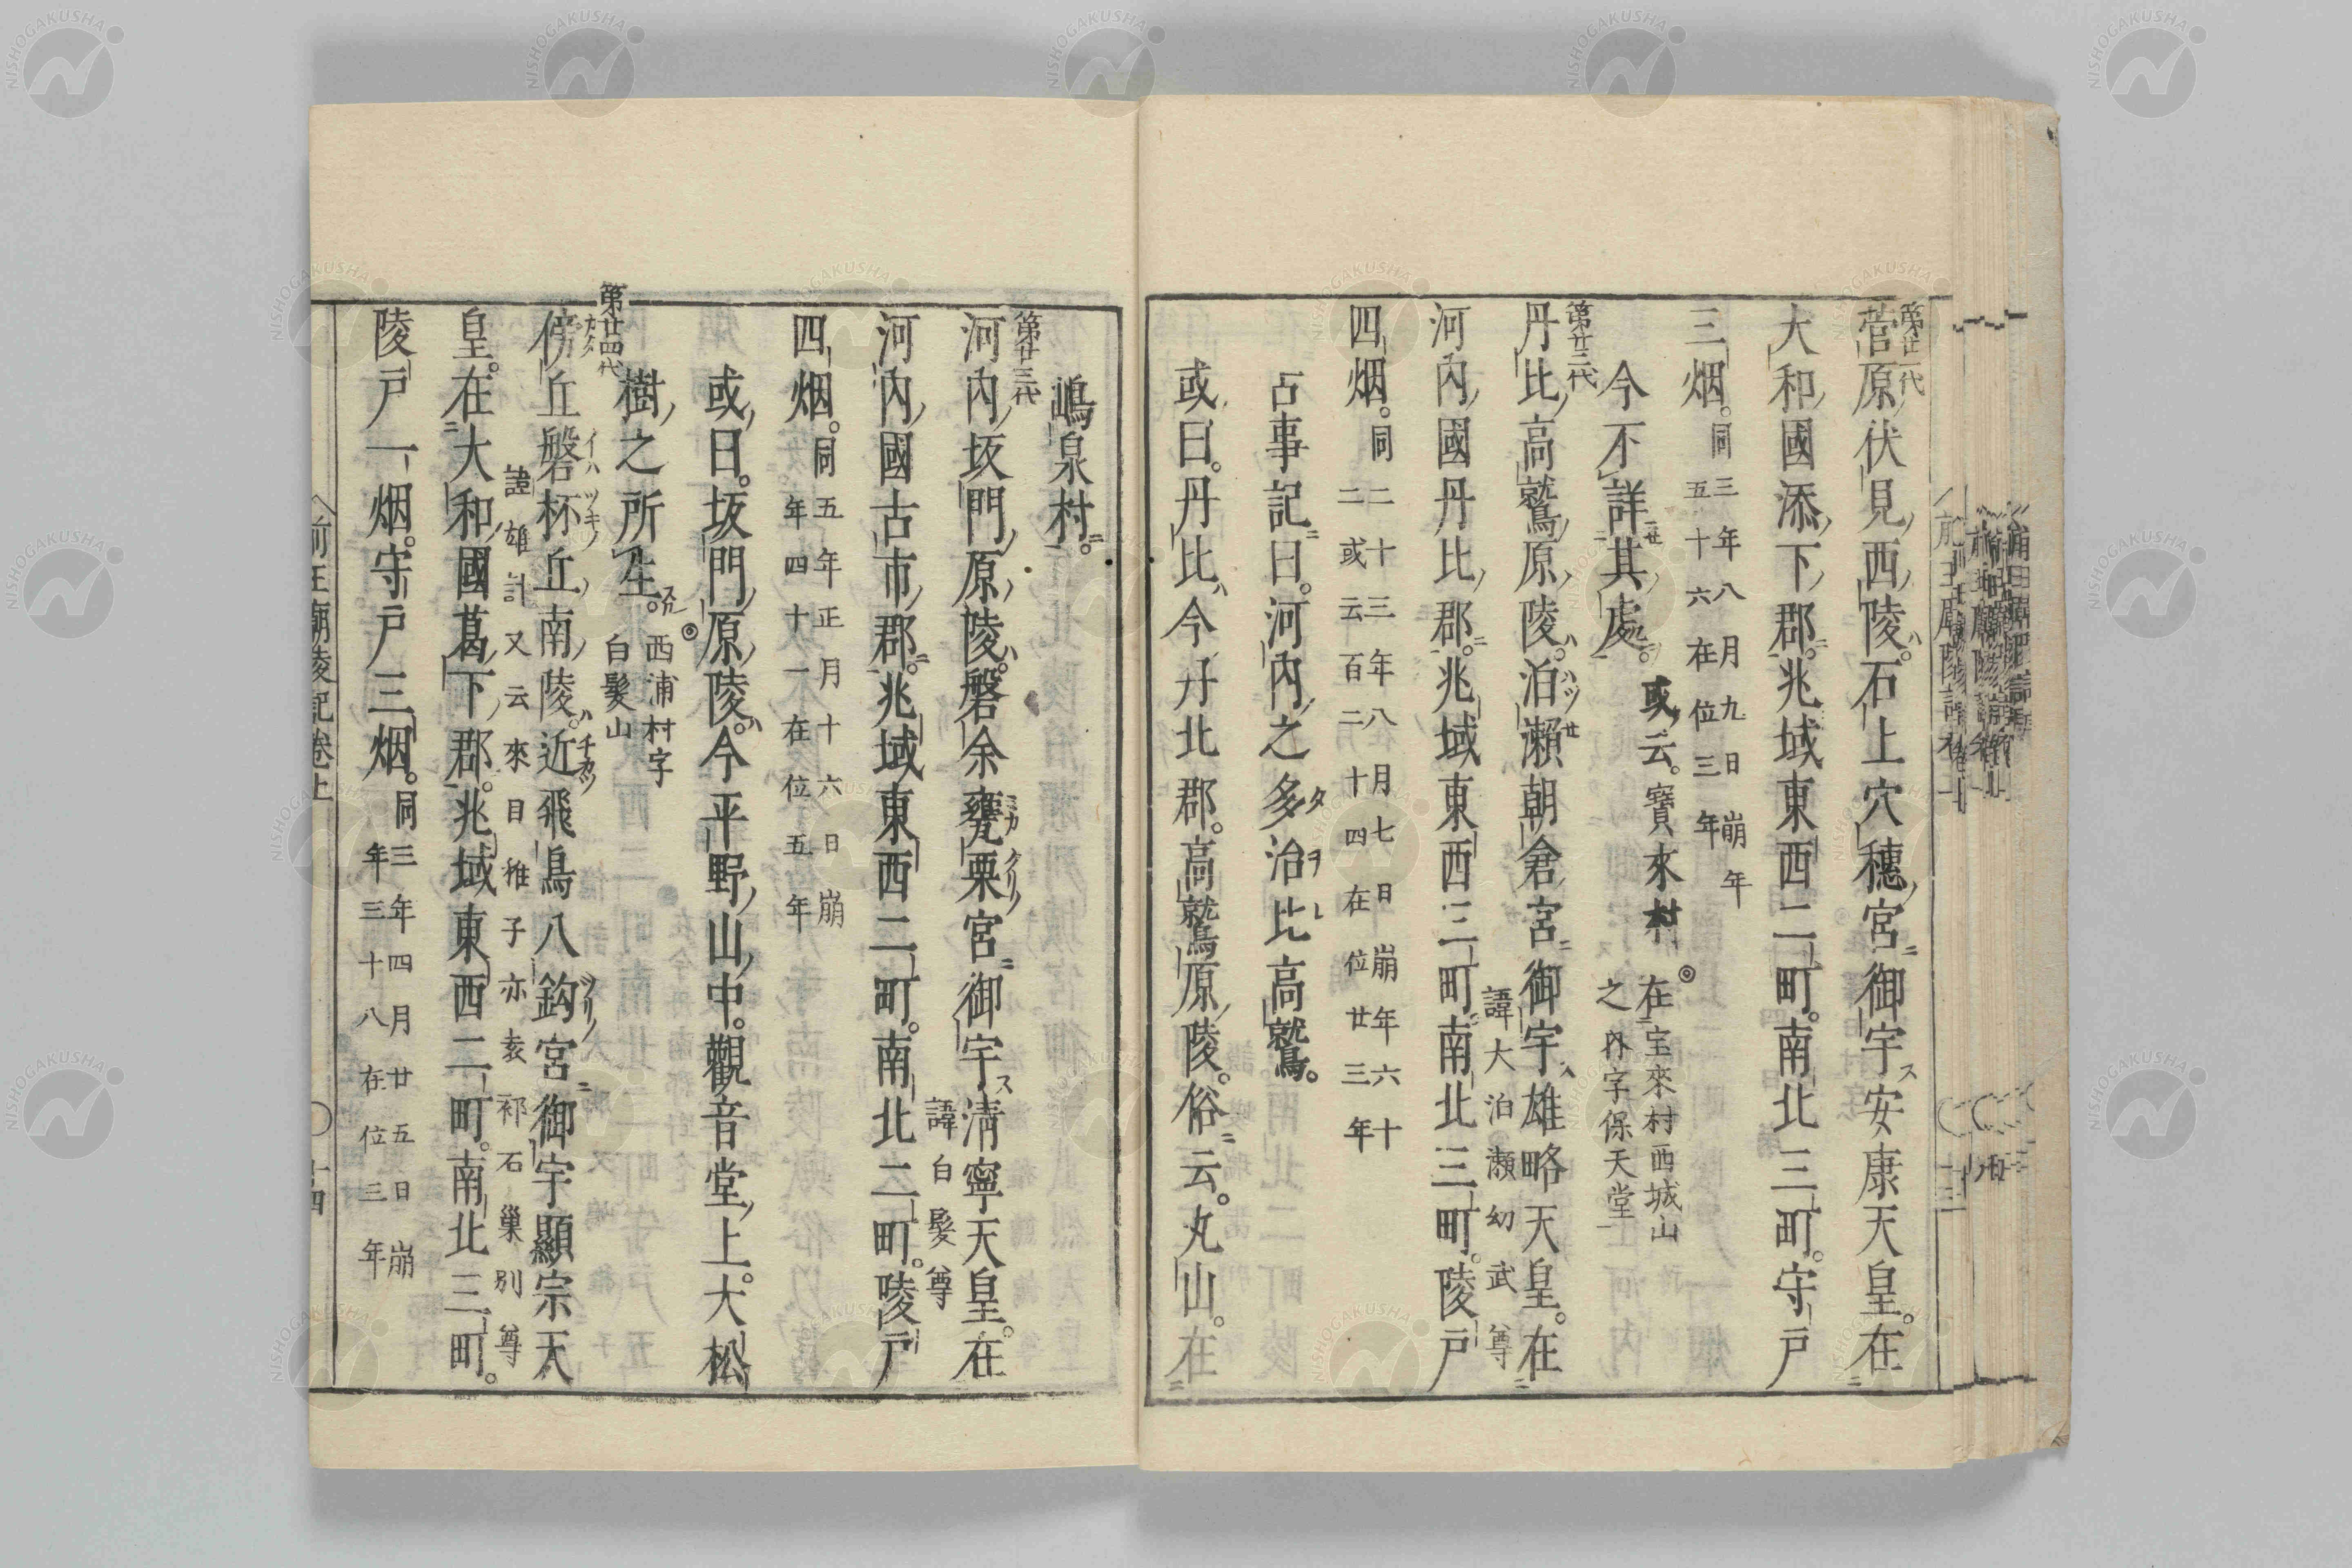 第廿一代
菅原伏見西陵。石上穴穗宮御宇安康天皇。在
大和國添下郡。兆域東西二町。南北三町。守戸
三烟。同三年八月九日崩年五十六在位三年
今不詳其處。或云。寶來村◎在宝來村西城山之內字保天堂
第廿二代
丹比高鷲原陵。泊瀬朝倉宮御宇雄略天皇。在
諱大泊瀬幼武尊
河內國丹比郡。兆域東西三町。南北三町。陵戸
四烟。同二十三年八月七日崩年六十二或云百二十四在位廿三年
古事記曰。河內之多治比高鷲。
或曰。丹比今丹北郡。高鷲原陵。俗云。丸山。在
嶋泉村。
第廿三代
河內坂門原陵。磐余甕栗宮御宇淸寧天皇。在
諱白髮尊
河內國古市郡。兆域東西二町。南北二町。陵戸
四烟。同五年正月十六日崩年四十一在位五年
或曰。坂門原陵。今平野山中。觀音堂上。大松
樹之所生。◎西浦村字白髮山
第廿四代
傍丘磐杯丘南陵。近飛鳥八鈎宮御宇顯宗天
諱雄計又云來目稚子亦袁祁石巢別尊
皇。在大和國葛下郡。兆域東西二町。南北三町。
陵戸一烟。守戸三烟。同三年四月廿五日崩年三十八在位三年
前王廟陵記卷上 十四